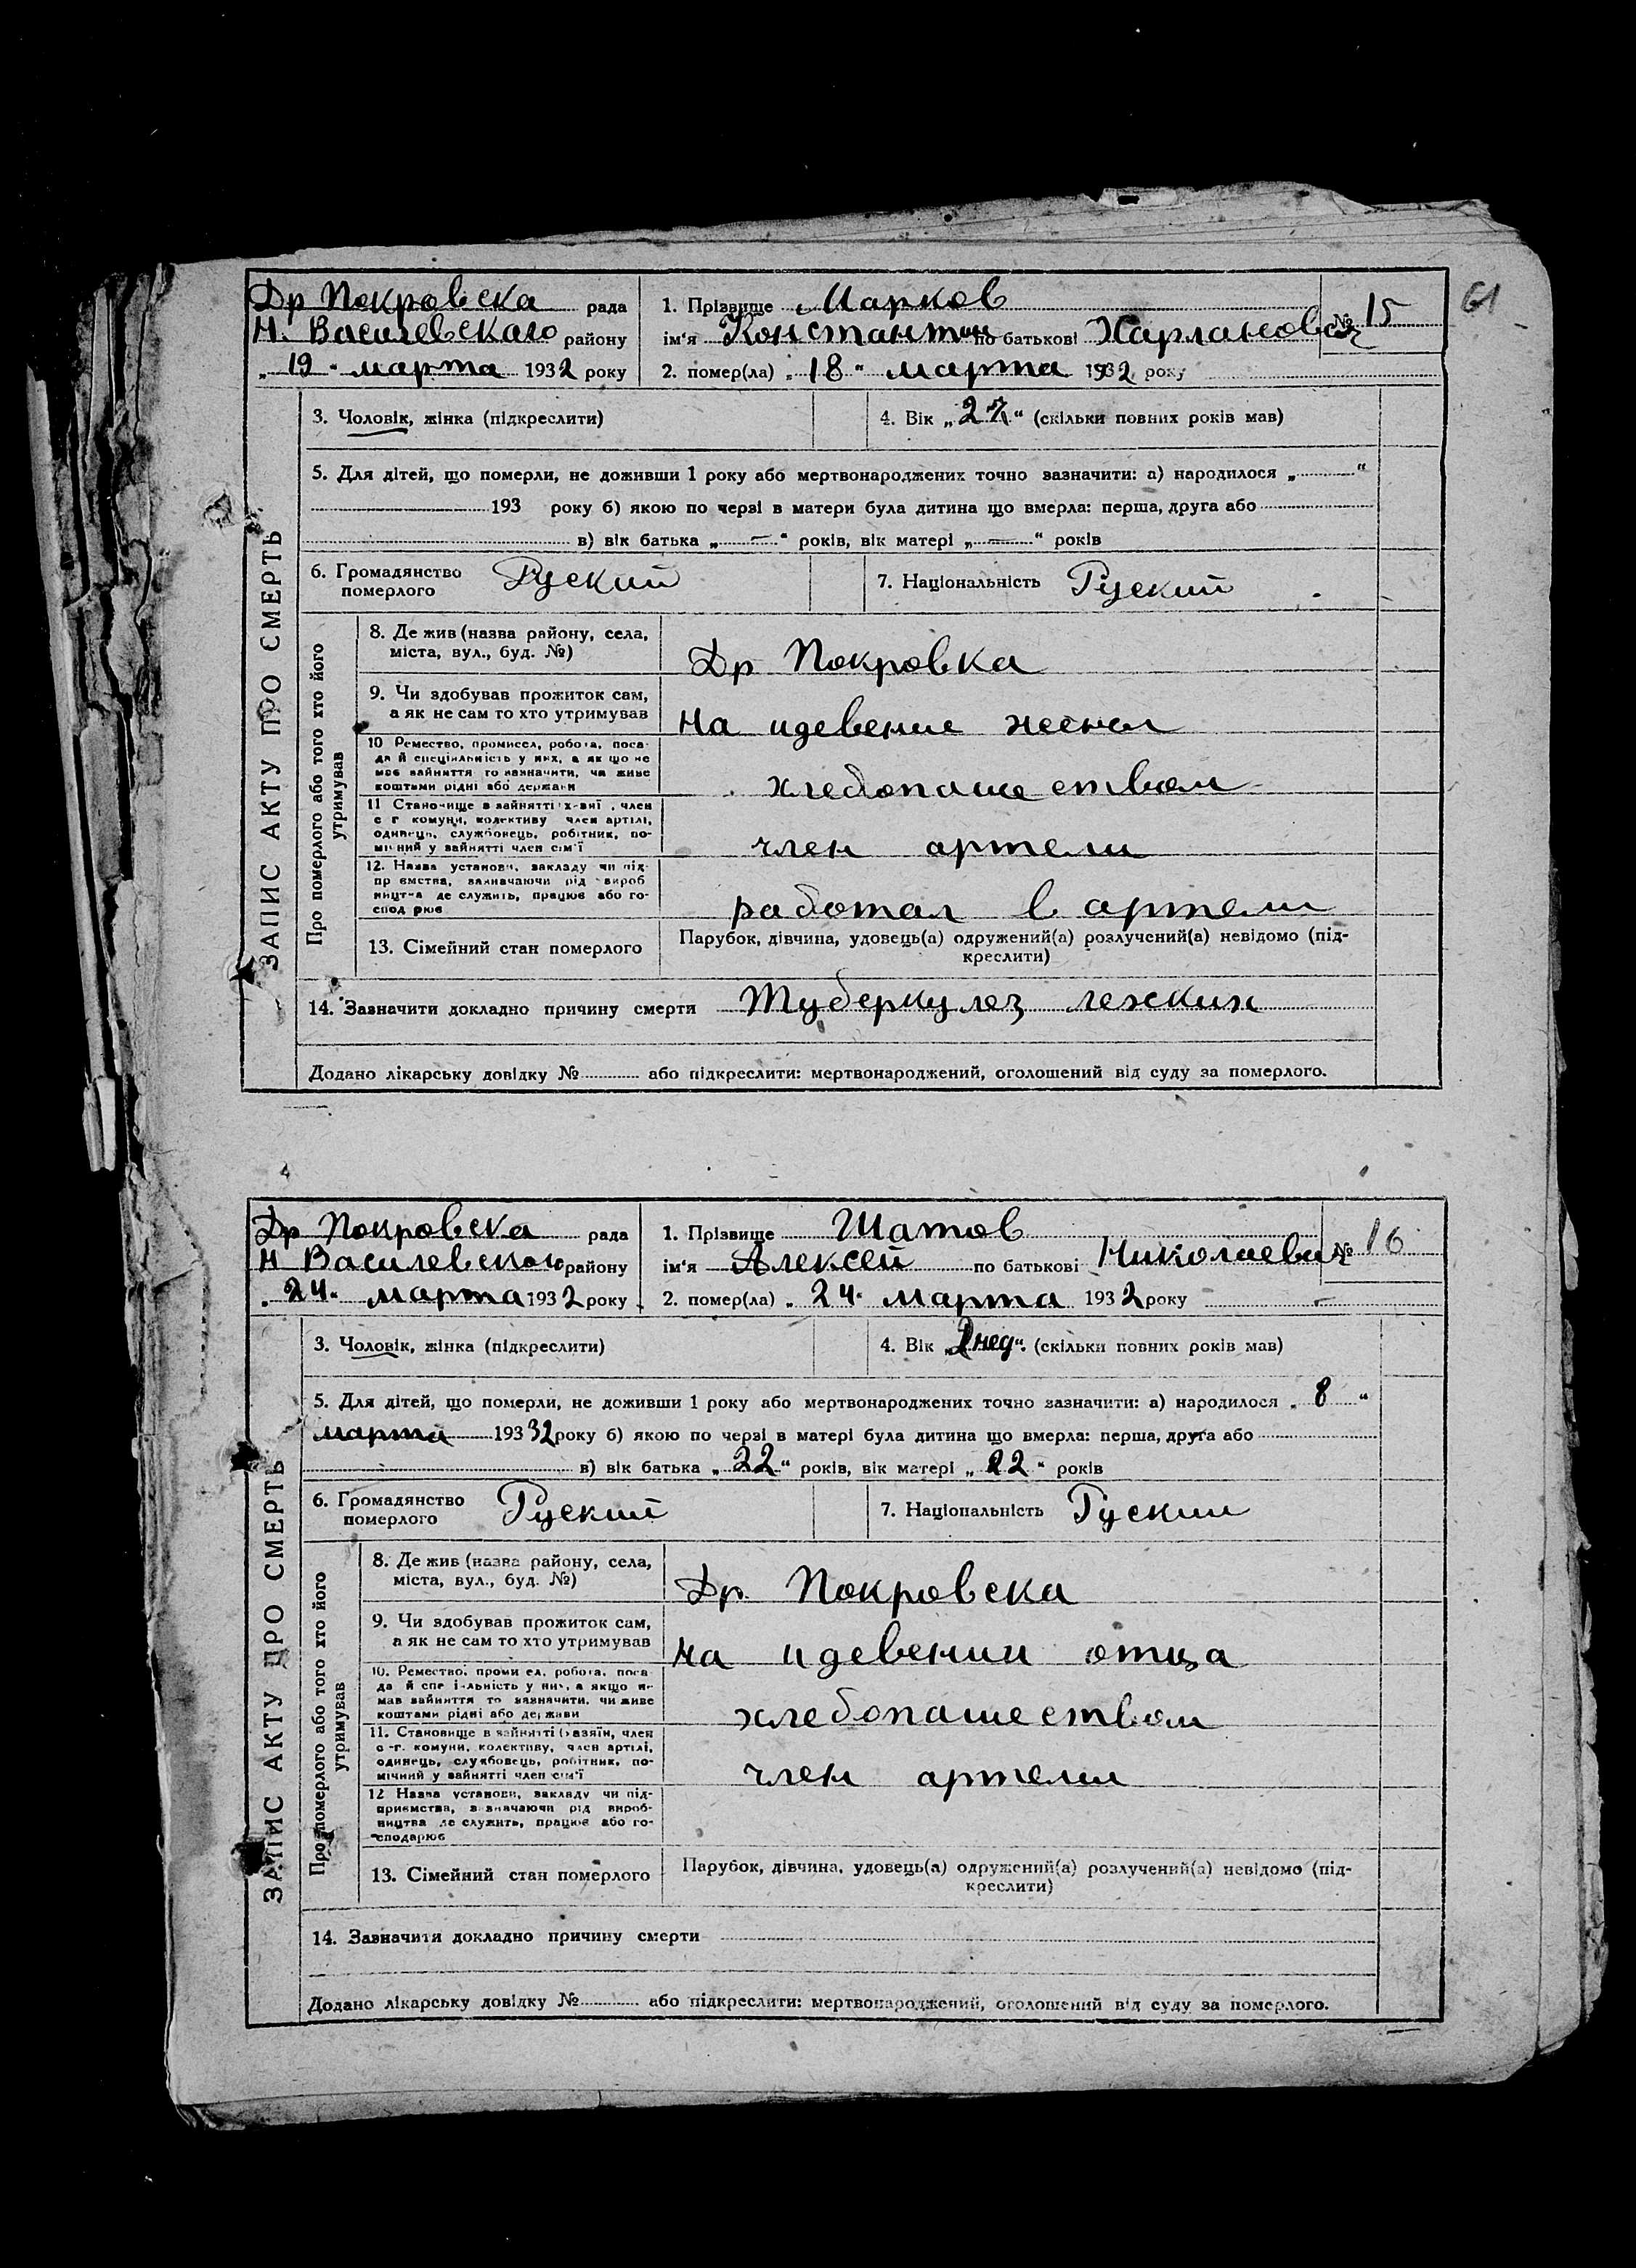 61
Др Покровска рада
Н. Василевскаго району
„19“ марта 1932 року
1. Прізвище Марков
ім'я Константин по батькові Харланович
№ 15
2. помер(ла) „18“ марта 1932 року
ЗАПИС АКТУ ПРО СМЕРТЬ
3. Чоловік, жінка (підкреслити)
4. Вік „27“ (скільки повних років мав)
5. Для дітей, що померли, не доживши 1 року або мертвонароджених точно зазначити: а) народилося „ “
193 року б) якою по черзі в матери була дитина що вмерла: перша, друга або
в) вік батька „—“ років, вік матері „—“ років
6. Громадянство
померлого
Руский
7. Національність Руский
Про померлого або того хто його
утримував
8. Де жив (назва району, села,
міста, вул., буд. №)
Др Покровка
9. Чи здобував прожиток сам,
а як не сам то хто утримував
на идевение
10 Ремество, промисел, робота, поса-
да й спеціяльність у них, а як що не
мав зайняття то зазначити, чи живе
коштами рідні або держави
хлебопашеством
11 Становище в зайнятті член
с г комуни, колективу член артілі,
одинець, службовець, робітник, по-
мічний у зайнятті член сім'ї
член артели
12. Назва установи, закладу чи під-
пр ємства, зазначаючи рід вироб
ництва де служить, працює або го-
спод рює
работал в артели
13. Сімейний стан померлого
Парубок, дівчина, удовець(а) одружений(а) розлучений(а) невідомо (під-
креслити)
14. Зазначити докладно причину смерти Туберкулез легких
Додано лікарську довідку № або підкреслити: мертвонароджений, оголошений від суду за померлого.
Др Покровска рада
Н Василевского району
„24“ марта 1932 року
1. Прізвище Шатов
ім'я Алексей по батькові Николаевич
№ 16
2. помер(ла) „24“ марта 1932 року
ЗАПИС АКТУ ПРО СМЕРТЬ
3. Чоловік, жінка (підкреслити)
4. Вік „2 нед“ (скільки повних років мав)
5. Для дітей, що померли, не доживши 1 року або мертвонароджених точно зазначити: а) народилося „8“
марта 19332 року б) якою по черзі в матері була дитина що вмерла: перша, друга або
в) вік батька „22“ років, вік матері „22“ років
6. Громадянство
померлого
Руский
7. Національність Руский
Про померлого або того хто його
утримував
8. Де жив (назва району, села,
міста, вул., буд. №)
Др. Покровска
9. Чи здобував прожиток сам,
а як не сам то хто утримував
на идевении отца
10. Ремество, проми ел, робота, поса
да й спе іяльність у них, а якщо н-
мав зайняття то зазначити, чи живе
коштами рідні або держави
хлебопашеством
11. Становище в зайнятті (хазяїн, член
с-г. комуни, колективу, член артілі,
одинець, службовець, робітник, по-
мічний у зайнятті член сім'ї
член артели
12 Назва установи, закладу чи під-
приємства, зазначаючи рід вироб-
ництва де служить, працює або го-
сподарює
13. Сімейний стан померлого
Парубок, дівчина, удовець(а) одружений(а) розлучений(а) невідомо (під-
креслити)
14. Зазначити докладно причину смерти
Додано лікарську довідку № або підкреслити: мертвонароджений, оголошений від суду за померлого.